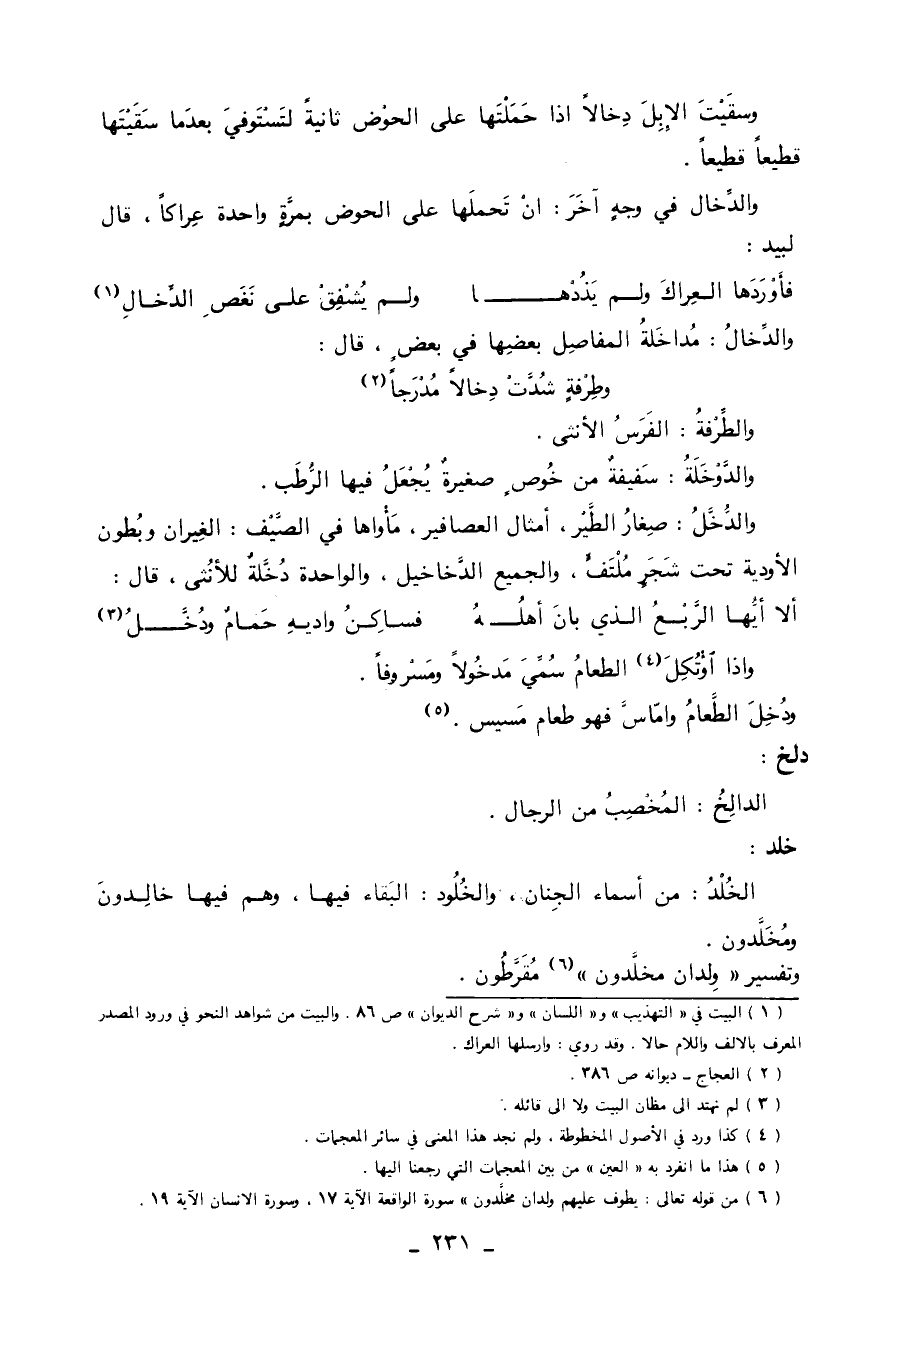 وسقَيْتَ الإبِلَ دِخالاً اذا حَمَلْتَها على الحوْض ثانيةً لتَسْتَوفيَ بعدَما سقَيْتَها
قطيعاً قطيعاً .
والدِّخال في وجهٍ آخَرَ : انْ تَحملَها على الحوض بمرَّةٍ واحدة عِراكاً ، قال
لبيد :
فأوْرَدَها العِراكَ ولم يَذُدْها ولم يُشْفِقْ على نَغَصِ الدِّخالِ (١)
والدِّخالُ : مُداخَلةُ المفاصِل بعضِها في بعضٍ ، قال :
وطِرْفةٍ شُدَّتْ دِخالاً مُدْرَجاً (٢)
والطِّرْفةُ : الفَرَسُ الأنثى .
والدَّوْخَلَةُ : سَفيفةٌ من خُوصٍ صغيرةٌ يُجْعَلُ فيها الرُّطَب .
والدُّخَّلُ : صِغارُ الطَّيْر ، أمثال العصافير ، مَأْواها في الصَّيْف : الغِيران وبُطون
الأودية تحت شَجَرٍ مُلْتَفٍّ ، والجميع الدَّخاخيل ، والواحدة دُخَّلةٌ للأنُثى ، قال :
ألا أيُّها الرَّبْعُ الذي بانَ أهلُهُ فساكِنُ واديهِ حَمامٌ ودُخَّلُ (٣)
واذا اؤْتُكِلَ (٤) الطعامُ سُمِّيَ مَدخُولاً ومَسْروفاً .
ودُخِلَ الطَّعامُ وامّاسَّ فهو طعام مَسيس . (٥)
دلخ :
الدالِخُ : المُخْصِبُ من الرجال .
خلد :
الخُلْدُ : من أسماء الجِنان ، والخُلُود : البَقاء فيها ، وهم فيها خالِدونَ
ومُخَلَّدون .
وتفسير « وِلدان مخلَّدون » (٦) مُقَرَّطُون .
( ١ ) البيت في « التهذيب » و« اللسان » و« شرح الديوان » ص ٨٦ . والبيت من شواهد النحو في ورود المصدر
المعرف بالالف واللام حالا . وقد روي : وارسلها العراك .
( ٢ ) العجاج ـ ديوانه ص ٣٨٦ .
( ٣ ) لم نهتد الى مظان البيت ولا الى قائله .
( ٤ ) كذا ورد في الأصول المخطوطة ، ولم نجد هذا المعنى في سائر المعجمات .
( ٥ ) هذا ما انفرد به « العين » من بين المعجمات التي رجعنا اليها .
( ٦ ) من قوله تعالى : يطوف عليهم ولدان مخلَّدون » سورة الواقعة الآية ١٧ ، وسورة الانسان الآية ١٩ .
ـ ٢٣١ ـ